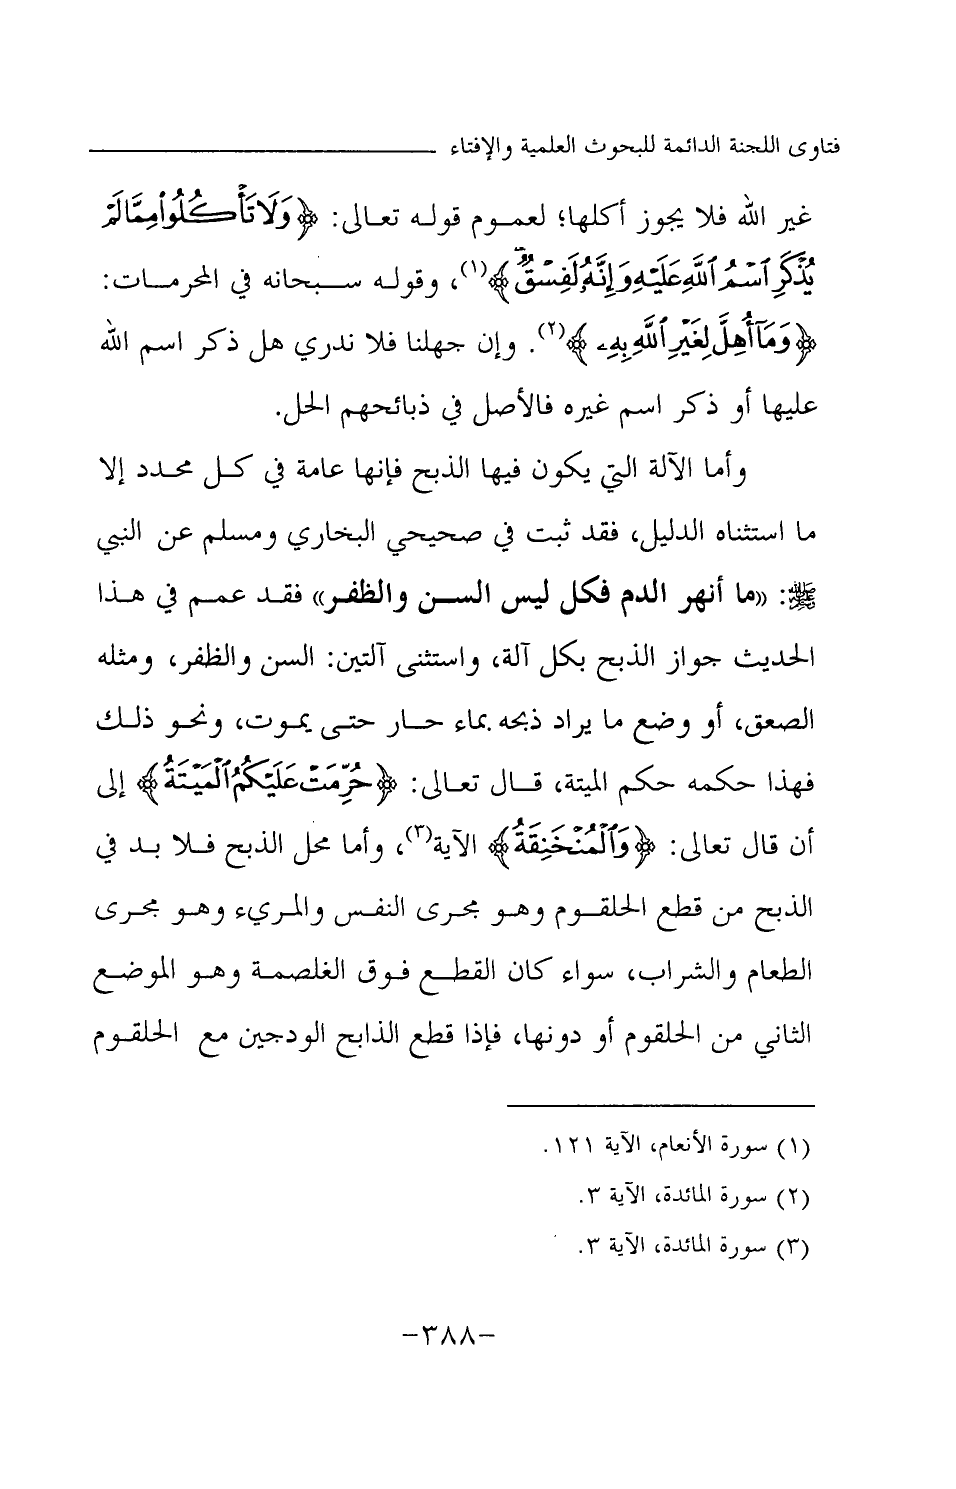 فتاوى اللجنة الدائمة للبحوث العلمية والإفتاء
غير الله فلا يجوز أكلها؛ لعموم قوله تعالى: ﴿وَلَا تَأْكُلُوا۟ مِمَّا لَمْ
يُذْكَرِ ٱسْمُ ٱللَّهِ عَلَيْهِ وَإِنَّهُۥ لَفِسْقٌ﴾(١)، وقوله سبحانه في المحرمات:
﴿وَمَآ أُهِلَّ لِغَيْرِ ٱللَّهِ بِهِۦ﴾(٢). وإن جهلنا فلا ندري هل ذكر اسم الله
عليها أو ذكر اسم غيره فالأصل في ذبائحهم الحل.
وأما الآلة التي يكون فيها الذبح فإنها عامة في كل محدد إلا
ما استثناه الدليل، فقد ثبت في صحيحي البخاري ومسلم عن النبي
ﷺ: «ما أنهر الدم فكل ليس السن والظفر» فقد عمم في هذا
الحديث جواز الذبح بكل آلة، واستثنى آلتين: السن والظفر، ومثله
الصعق، أو وضع ما يراد ذبحه بماء حار حتى يموت، ونحو ذلك
فهذا حكمه حكم الميتة، قال تعالى: ﴿حُرِّمَتْ عَلَيْكُمُ ٱلْمَيْتَةُ﴾ إلى
أن قال تعالى: ﴿وَٱلْمُنْخَنِقَةُ﴾ الآية(٣)، وأما محل الذبح فلا بد في
الذبح من قطع الحلقوم وهو مجرى النفس والمريء وهو مجرى
الطعام والشراب، سواء كان القطع فوق الغلصمة وهو الموضع
الثاني من الحلقوم أو دونها، فإذا قطع الذابح الودجين مع الحلقوم
(١) سورة الأنعام، الآية ١٢١.
(٢) سورة المائدة، الآية ٣.
(٣) سورة المائدة، الآية ٣.
-٣٨٨-